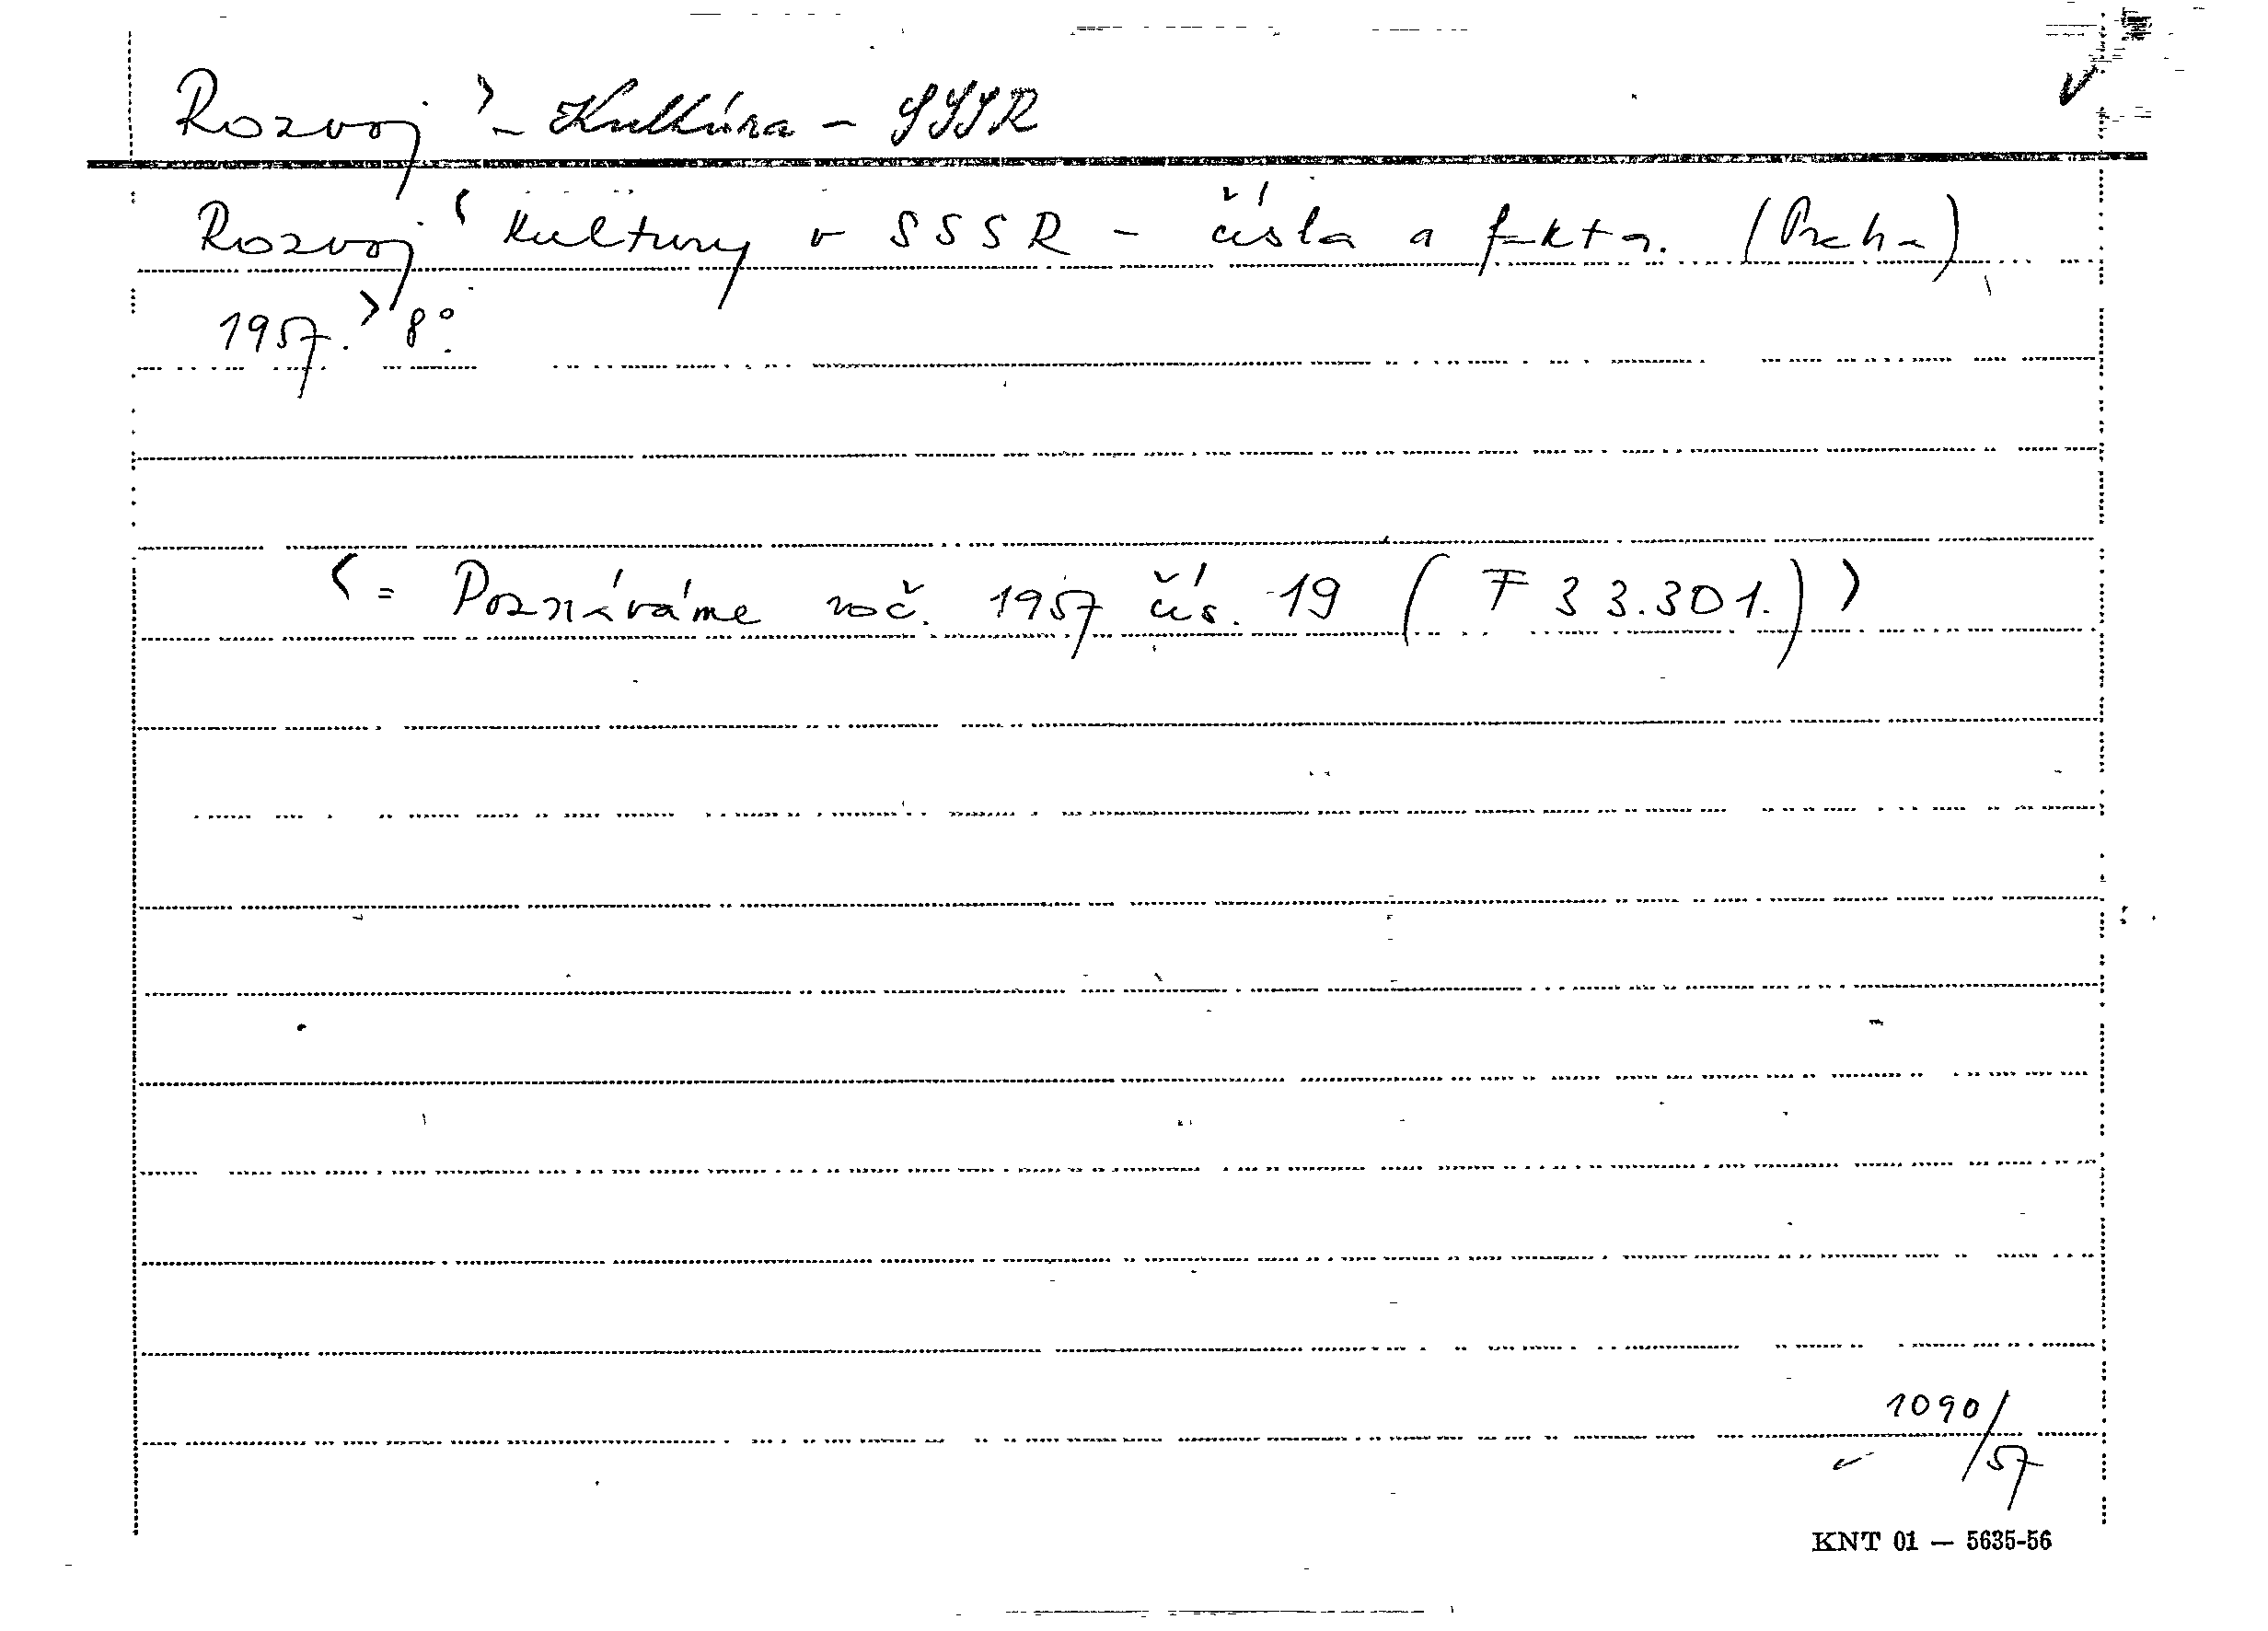 Rozvoj > - Kultúra - SSSR
Rozvoj < kultury v SSSR - čísla a fakta. (Praha)
1957. > 8°.
< = Poznáváme roč. 1957 čís. 19 ( F 33.301.) >
1090/57
KNT 01 — 5635-56